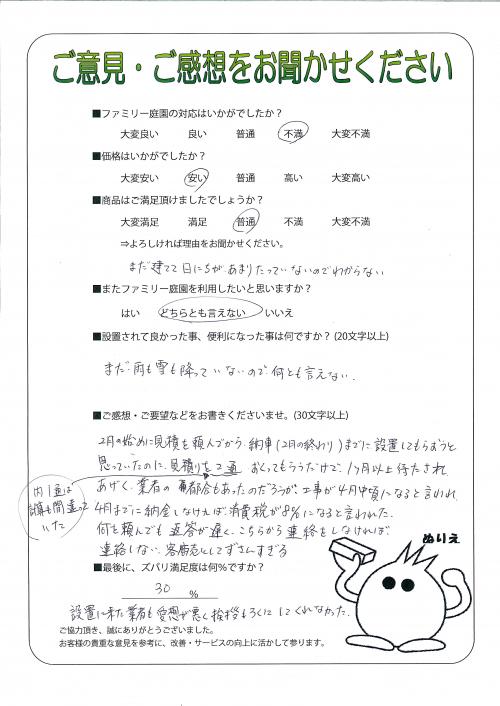 ご意見・ご感想をお聞かせください
■ファミリー庭園の対応はいかがでしたか？
大変良い 良い 普通 不満 大変不満
■価格はいかがでしたか？
大変安い 安い 普通 高い 大変高い
■商品はご満足頂けましたでしょうか？
大変満足 満足 普通 不満 大変不満
⇒よろしければ理由をお聞かせください。
まだ建てて日にちがあまりたっていないのでわからない
■またファミリー庭園を利用したいと思いますか？
はい どちらとも言えない いいえ
■設置されて良かった事、便利になった事は何ですか？(20文字以上)
まだ雨も雪も降っていないので何とも言えない.
■ご感想・ご要望などをお書きくださいませ。(30文字以上)
2月の始めに見積を頼んでから、納車(2月の終わり)までに設置してもらおうと
思っていたのに、見積りを2通おくってもらうだけで1ヶ月以上待たされ
内1通は
計算も間違って
いた
あげく、業者の都合もあったのだろうが、工事が4月中頃になると言いわれ
4月までに納金しなければ消費税が8%になると言われた。
何を頼んでも返答が遅く、こちらから連絡をしなければ
連絡しない、客商売としてずさんすぎる
ぬりえ
■最後に、ズバリ満足度は何%ですか？
30 %
設置に来た業者も愛想が悪く挨拶もろくにしてくれなかった.
ご協力頂き、誠にありがとうございました。
お客様の貴重な意見を参考に、改善・サービスの向上に活かして参ります。